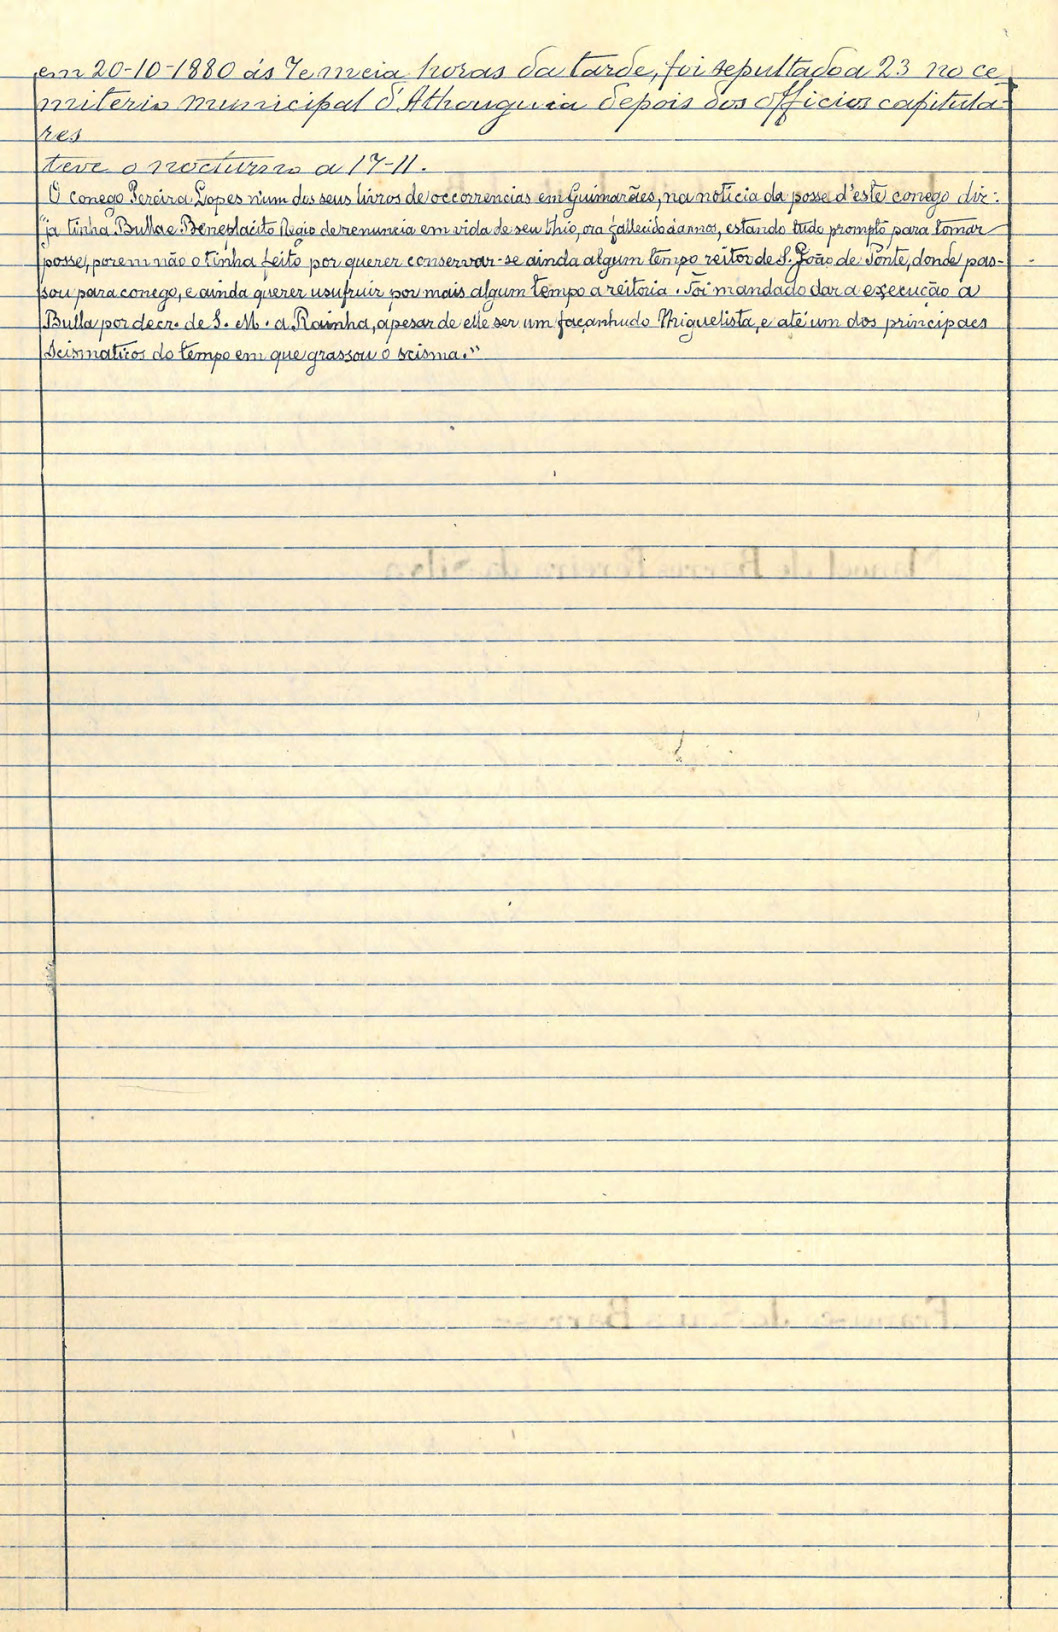 em 20-10-1880 ás 7 e meia horas da tarde, foi sepultado a 23 no ce
miterio municipal d'Athouguia depois dos officios capitula-
res
teve o nocturno a 17-11.
O conego Pereira Lopes n'um dos seus livros de occorrencias em Guimarães, na noticia da posse d'este conego diz:
"já tinha Bulla e Beneplacito Regio de renuncia em vida de seu thio, ora fallecido á annos, estando tudo prompto para tomar
posse, porem não o tinha feito por querer conservar-se ainda algum tempo reitor de S. João de Ponte, donde pas-
sou para conego, e ainda querer usufruir por mais algum tempo a reitoria. Foi mandado dar a execução a
Bulla por decr. de S. M. a Rainha, apesar de elle ser um façanhudo Miguelista, e até um dos principaes
Scismaticos do tempo em que grassou o scisma."
Manuel de Barros Pereira da Silva